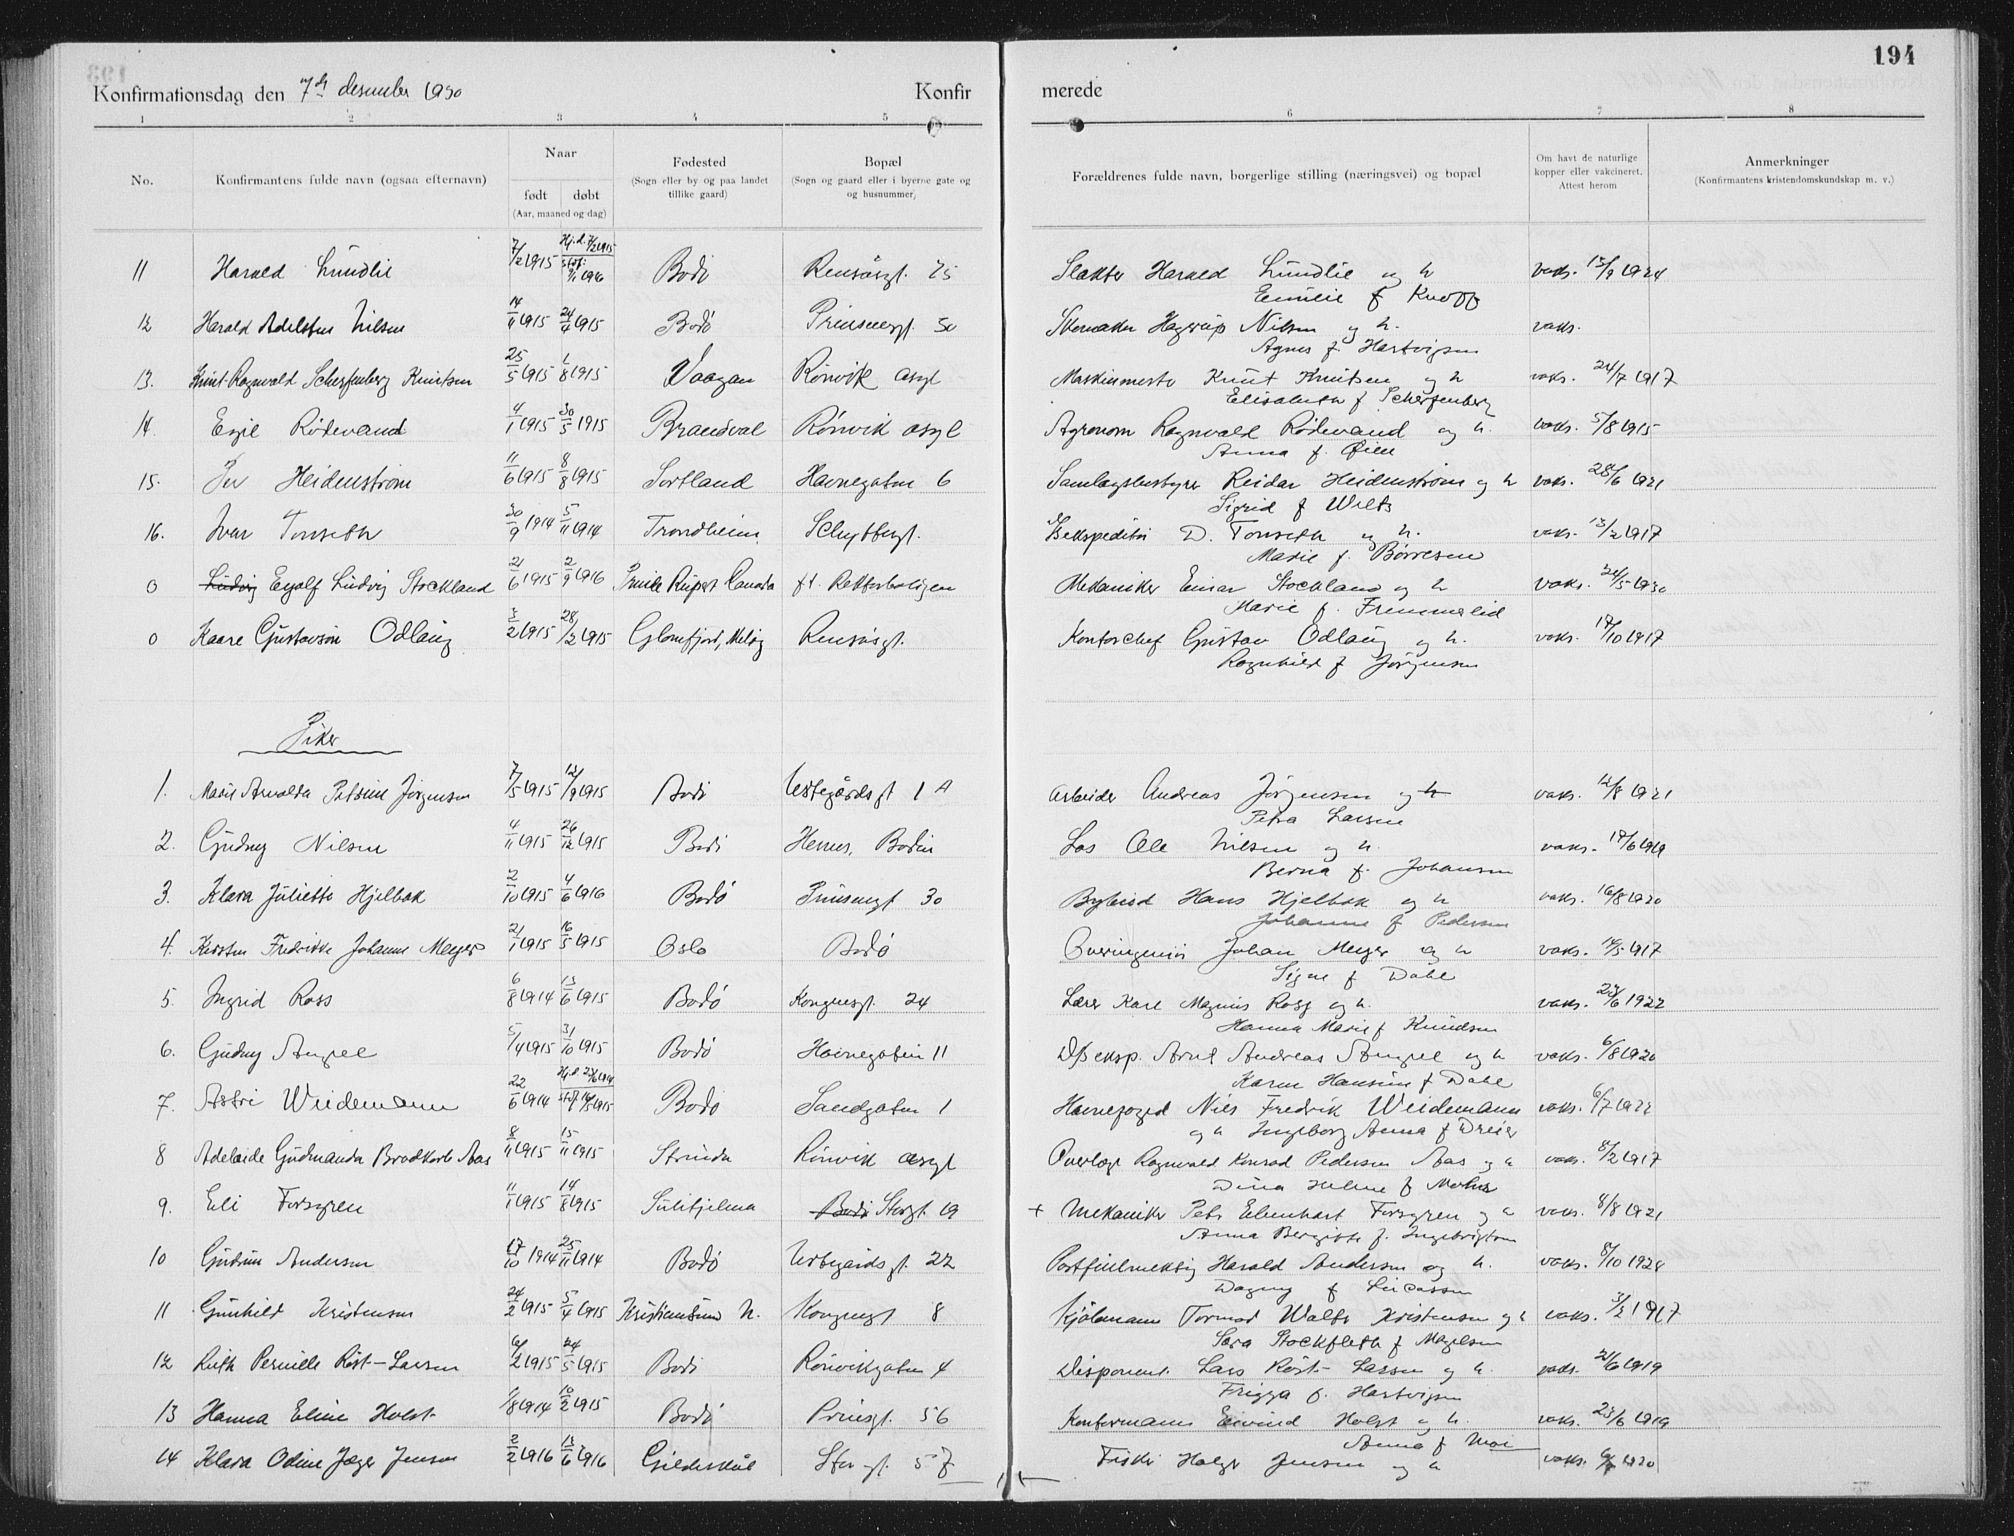 194
Konfirmationsdag den 7de desember 1930 Konfirmerede
1 2 3 4 5 6 7 8
No. Konfirmantens fulde navn (ogsaa efternavn) Naar Fødested Bopæl Forældrenes fulde navn, borgerlige stilling (næringsvei) og bopæl Om havt de naturlige Anmerkninger
født døbt (Sogn eller by og paa landet (Sogn og gaard eller i byerne gate og kopper eller vakcineret. (Konfirmantens kristendomskundskap m. v.)
(Aar, maaned og dag) tillike gaard) og husnummer) Attest herom
11 Harald Lundlie 7/2 1915 Hj.d. 7/2 1915 Bodø Rensåsgt. 75 Slakter Harald Lundlie og h vaks. 15/9 1924
stadf. 9/1 1916 Emilie f Knoff
12 Harald Adelsten Nilsen 14/4 1915 24/4 1915 Bodø Prinsensgt. 50 Skomaker Hagerup Nilsen og h. vaks.
Agnes f. Hartvigsen
13. Knut Ragnvald Scherfenberg Knutsen 25/5 1915 1/8 1915 Vaagan Rönvik asyl Maskinmester Knut Knutsen og h vaks. 24/7 1917
Elisabeth f Scherfenberg
14. Egil Rödevand 4/1 1915 30/5 1915 Brandval Rönvik asyl Agronom Ragnvald Rödevand og h. vaks. 5/8 1915
Anna f. Øien
15. Per Heidenstrøm 11/6 1915 8/8 1915 Sortland Havnegaten 6 Samlagsbestyrer Reidar Heidenstrøm og h vaks. 28/6 1921
Sigrid f Wilts
16. Ivar Tonseth 30/9 1914 5/11 1914 Trondheim. Schyttesgt. Ekspeditør D. Tonseth og h. vaks. 13/2 1917
Marie f. Børresen
0 Ludvig Eyolf Ludvig Stockland 21/6 1915 2/9 1916 Prince Rupert Canada ft. Rektorboligen Mekaniker Einar Stockland og h vaks. 24/5 1930
Marie f. Fremmerlid
0 Kaare Gustavson Odlaug 3/2 1915 28/2 1915 Glomfjord, Meløy Rensåsgt. Kontorchef Gustav Odlaug og h. vaks. 17/10 1917
Ragnhild f Jörgensen
Piker
1. Marie Arvalda Petrine Jörgensen 7/5 1915 12/9 1915 Bodö Vestegårdsgt 1 A Arbeider Andreas Jörgensen og h vaks. 12/8 1921
Petra Larsen
2. Gudny Nilsen 4/11 1915 26/12 1915 Bodö Hernes, Bodin Los Ole Nilsen og h. vaks. 17/6 1919
Berna f. Johansen
3. Klara Juliette Hjelbak 2/10 1915 4/6 1916 Bodø Prinsensgt 30 Bybud Hans Hjelbak og h vaks. 16/8 1920
Johanne f Pedersen
4. Kirsten Fredrikke Johanne Meyer 21/1 1915 16/5 1915 Oslo Bodø Overingeniør Johan Meyer og h vaks. 14/5 1917
Signe f Dahl
5. Ingrid Ross 6/8 1914 13/6 1915 Bodø Kongensgt. 24 Lærer Kare Magnus Ross og h. vaks. 23/6 1922
Hanna Marie f Knudsen
6. Gudny Angel 5/4 1915 31/10 1915 Bodø Havnegaten 11 D/S eksp. Arnt Andreas Angel og h vaks. 6/8 1920
Karen Hansine f Dahl
7. Astri Weidemann 22/6 1914 Bodø Sandgaten 1 Havnefoged Nils Fredrik Weidemann vaks. 6/7 1922
og h Ingeborg Anna f Dreier
8 Adelaide Gudmanda Brodkorb Aas 8/11 1915 15/11 1915 Strinda Rönvik asyl Overlæge Ragnvald Konrad Pedersen Aas og h vaks. 8/2 1917
Dina Helene f Mohus
9. Eli Forsgren 11/1 1915 14/8 1915 Sulitjelma Bodø Storgt. 19 + Mekaniker Peter Edenhart Forsgren og h vaks. 8/8 1921
Anna Bergitte f. Ingebrigtsen
10 Gudrun Andersen 17/10 1914 25/11 1914 Bodø Vestegårdsgt. 22 Postfuldmektig Harald Andersen og h. vaks. 8/10 1928
Dagny f Lucassen
11 Gunhild Kristensen 24/2 1915 5/4 1915 Kristiansund N. Kongensgt 8 Kjöbmann Tormod Walter Kristensen og h vaks. 3/2 1917
Sara Stockfleth f Magelsen
12 Ruth Pernille Röst-Larsen 6/2 1915 24/5 1915 Bodö Rönvikgaten 4 Disponent. Lars Röst-Larsen og h. vaks. 21/6 1919
Frigga f. Hartvigsen
13 Hanna Eline Holst 1/8 1914 10/2 1915 Bodø Prinsgt. 56 Kontormann Eivind Holst og h. vaks. 23/6 1919
Anna f Moe
14 Klara Odine Jæger Jensen 2/2 1916 13/6 1916 Gildeskål Storgt. 57 Fisker Holger Jensen og h vaks. 1920